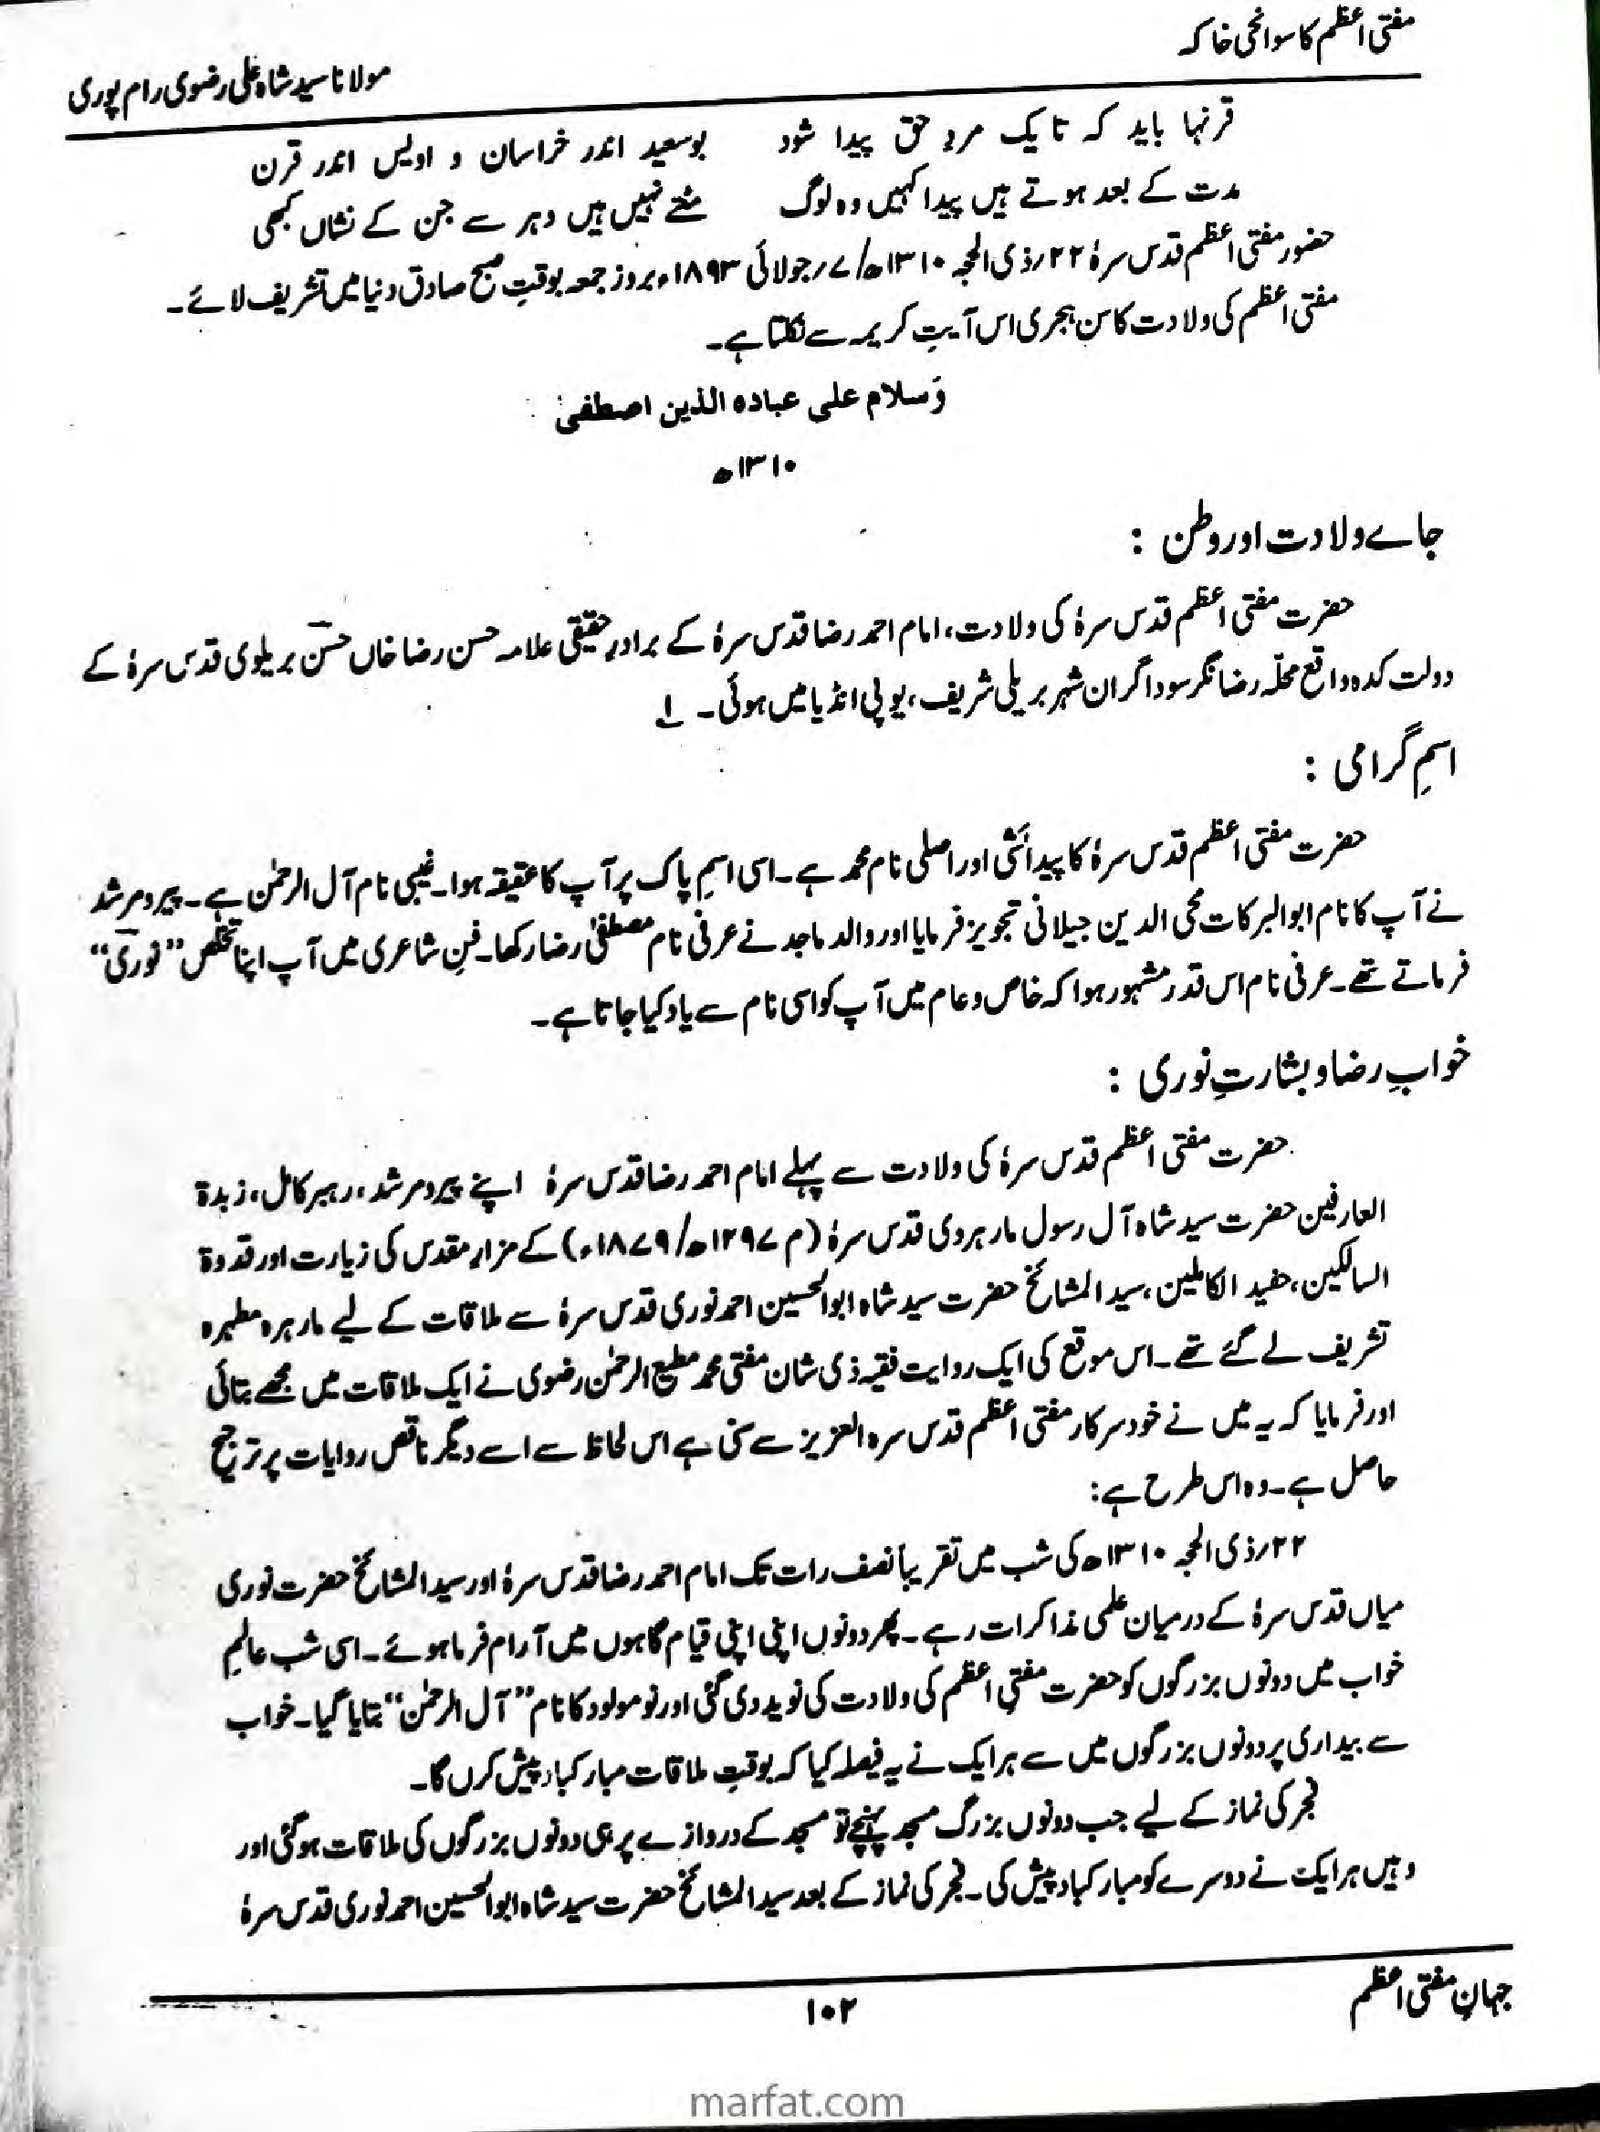 مفتی اعظم کا سوانحی خاکہ
مولانا سید شاہ علی رضوی رام پوری
قرنہا باید کہ تا یک مردِ حق پیدا شود بوسعید اندر خراسان و اویس اندر قرن
مدت کے بعد ہوتے ہیں پیدا کہیں وہ لوگ مٹتے نہیں ہیں دہر سے جن کے نشاں کبھی
حضور مفتی اعظم قدس سرہٗ ۲۲؍ذی الحجہ ۱۳۱۰ھ/۷؍جولائی ۱۸۹۳ء بروز جمعہ بوقتِ صبح صادق دنیا میں تشریف لائے۔
مفتی اعظم کی ولادت کا سن ہجری اس آیتِ کریمہ سے نکلتا ہے۔
وَسلام علی عبادہ الذین اصطفیٰ
۱۳۱۰ھ
جاے ولادت اور وطن :
حضرت مفتی اعظم قدس سرہٗ کی ولادت، امام احمد رضا قدس سرہٗ کے برادرِ حقیقی علامہ حسن رضا خاں حسنؔ بریلوی قدس سرہٗ کے
دولت کدہ واقع محلّہ رضا نگر سوداگران شہر بریلی شریف، یوپی انڈیا میں ہوئی۔ ۱؎
اسمِ گرامی :
حضرت مفتی اعظم قدس سرہٗ کا پیدائشی اور اصلی نام محمد ہے۔ اسی اسمِ پاک پر آپ کا عقیقہ ہوا۔ غیبی نام آل الرحمٰن ہے۔ پیر و مرشد
نے آپ کا نام ابوالبرکات محی الدین جیلانی تجویز فرمایا اور والد ماجد نے عرفی نام مصطفیٰ رضا رکھا۔ فنِ شاعری میں آپ اپنا تخلّص ”نوریؔ“
فرماتے تھے۔ عرفی نام اس قدر مشہور ہوا کہ خاص و عام میں آپ کو اسی نام سے یاد کیا جاتا ہے۔
خوابِ رضا و بشارتِ نوری :
حضرت مفتی اعظم قدس سرہٗ کی ولادت سے پہلے امام احمد رضا قدس سرہٗ اپنے پیر و مرشد، رہبر کامل، زبدۃ
العارفین حضرت سید شاہ آل رسول مارہروی قدس سرہٗ (م ۱۲۹۷ھ/۱۸۷۹ء) کے مزارِ مقدس کی زیارت اور قدوۃ
السالکین، حفید الکاملین، سید المشائخ حضرت سید شاہ ابوالحسین احمد نوری قدس سرہٗ سے ملاقات کے لیے مارہرہ مطہرہ
تشریف لے گئے تھے۔ اس موقع کی ایک روایت فقیہ ذی شان مفتی محمد مطیع الرحمٰن رضوی نے ایک ملاقات میں مجھے بتائی
اور فرمایا کہ یہ میں نے خود سرکار مفتی اعظم قدس سرہ العزیز سے سنی ہے اس لحاظ سے اسے دیگر ناقص روایات پر ترجیح
حاصل ہے۔ وہ اس طرح ہے:
۲۲؍ذی الحجہ ۱۳۱۰ھ کی شب میں تقریباً نصف رات تک امام احمد رضا قدس سرہٗ اور سید المشائخ حضرت نوری
میاں قدس سرہٗ کے درمیان علمی مذاکرات رہے۔ پھر دونوں اپنی اپنی قیام گاہوں میں آرام فرما ہوئے۔ اسی شب عالمِ
خواب میں دونوں بزرگوں کو حضرت مفتیِ اعظم کی ولادت کی نوید دی گئی اور نومولود کا نام ”آل الرحمٰن“ بتایا گیا۔ خواب
سے بیداری پر دونوں بزرگوں میں سے ہر ایک نے یہ فیصلہ کیا کہ بوقتِ ملاقات مبارکباد پیش کروں گا۔
فجر کی نماز کے لیے جب دونوں بزرگ مسجد پہنچے تو مسجد کے دروازے پر ہی دونوں بزرگوں کی ملاقات ہوگئی اور
وہیں ہر ایک نے دوسرے کو مبارکباد پیش کی۔ فجر کی نماز کے بعد سید المشائخ حضرت سید شاہ ابوالحسین احمد نوری قدس سرہٗ
جہانِ مفتی اعظم
۱۰۲
marfat.com